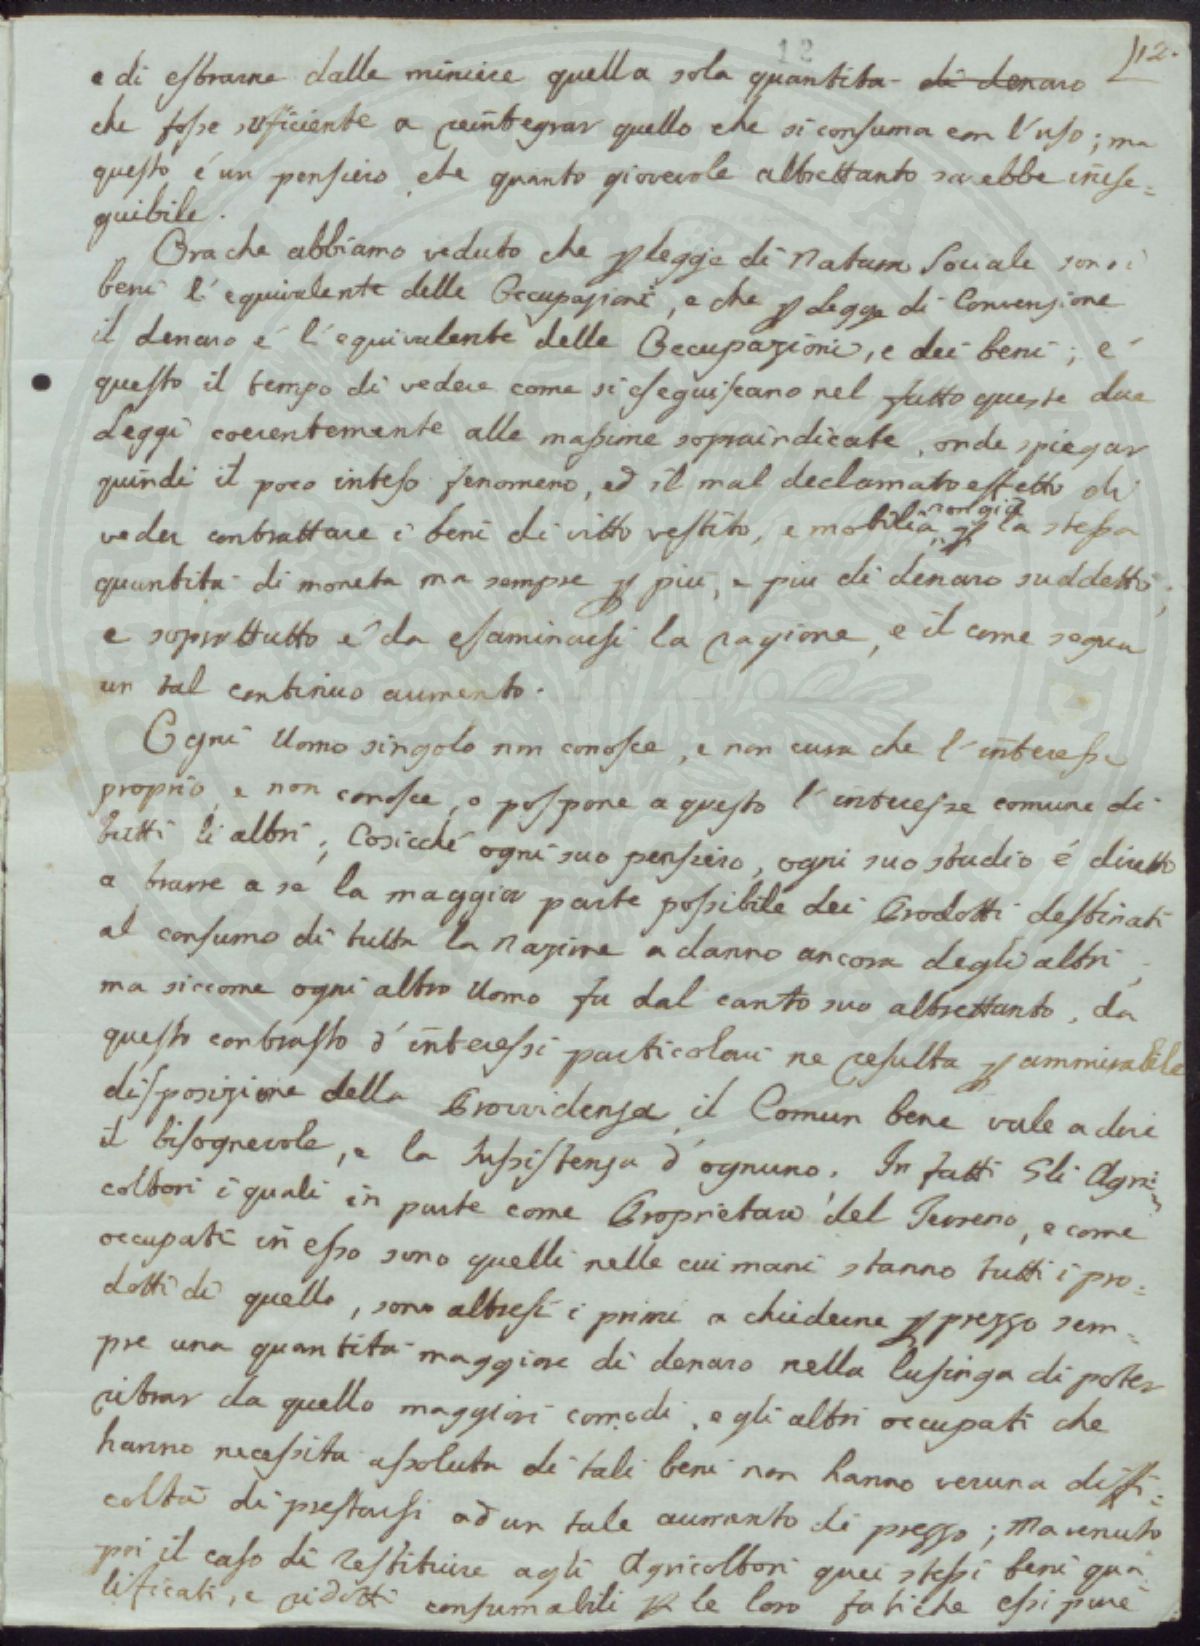 12
12.
e di estrarne dalle miniere quella sola quantita di denaro
che fosse suficiente a reintegrar quello che si consuma con l'uso; ma
questo é un pensiero che quanto giovevole altrettanto sarebbe inese=
guibile.
Ora che abbiamo veduto che p legge di Natura Sociale sono i
beni l'equivalente delle Occupazioni, e che p Legge di Convenzione
il denaro é l'equivalente delle Occupazioni, e dei beni; é
questo il tempo di vedere come si eseguiscano nel fatto queste due
Leggi coerentemente alle massime sopraindicate, onde spiegar
quindi il poco inteso fenomeno, ed il mal declamato effetto di
non gia
veder contrattare i beni di vitto vestito, e mobilia p la stessa
quantita di moneta ma sempre p piu, e piu di denaro suddetto;
e soprattutto é da esaminarsi la ragione, e il come segua
un tal continuo aumento.
Ogni Uomo singolo non conosce, e non cura che l'interesse
proprio, e non conosce, o pospone a questo l'interesse comune di
tutti li altri; Cosicché ogni suo pensiero, ogni suo studio é diretto
a trarre a se la maggior parte possibile dei Prodotti destinati
al consumo di tutta la Nazione a danno ancora degli altri,
ma siccome ogni altro Uomo fa dal canto suo altrettanto, da
questo contrasto d'interessi particolari ne resulta p ammirabile
disposizione della Provvidenza, il Comun bene vale a dire
il bisognevole, e la sussistenza d'ognuno. In fatti Gli Agri=
coltori i quali in parte come Proprietari del Terreno, e come
occupati in esso sono quelli nelle cui mani stanno tutti i pro=
dotti di quello, sono altresi i primi a chiederne p prezzo sem=
pre una quantita maggiore di denaro nella lusinga di poter
ritrar da quello maggiori comodi, e gli altri occupati che
hanno necessita assoluta di tali beni non hanno veruna diffi=
coltà di prestarsi ad un tale aumento di prezzo; Ma venuto
poi il caso di restituire agli Agricoltori quei stessi beni qua
lificati, e ridotti consumabili p le loro fatiche essi pure